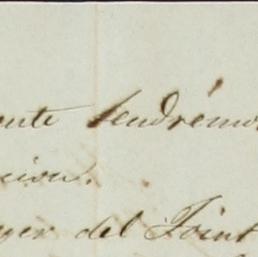 ente tendrémos
cion.
yer del Joint